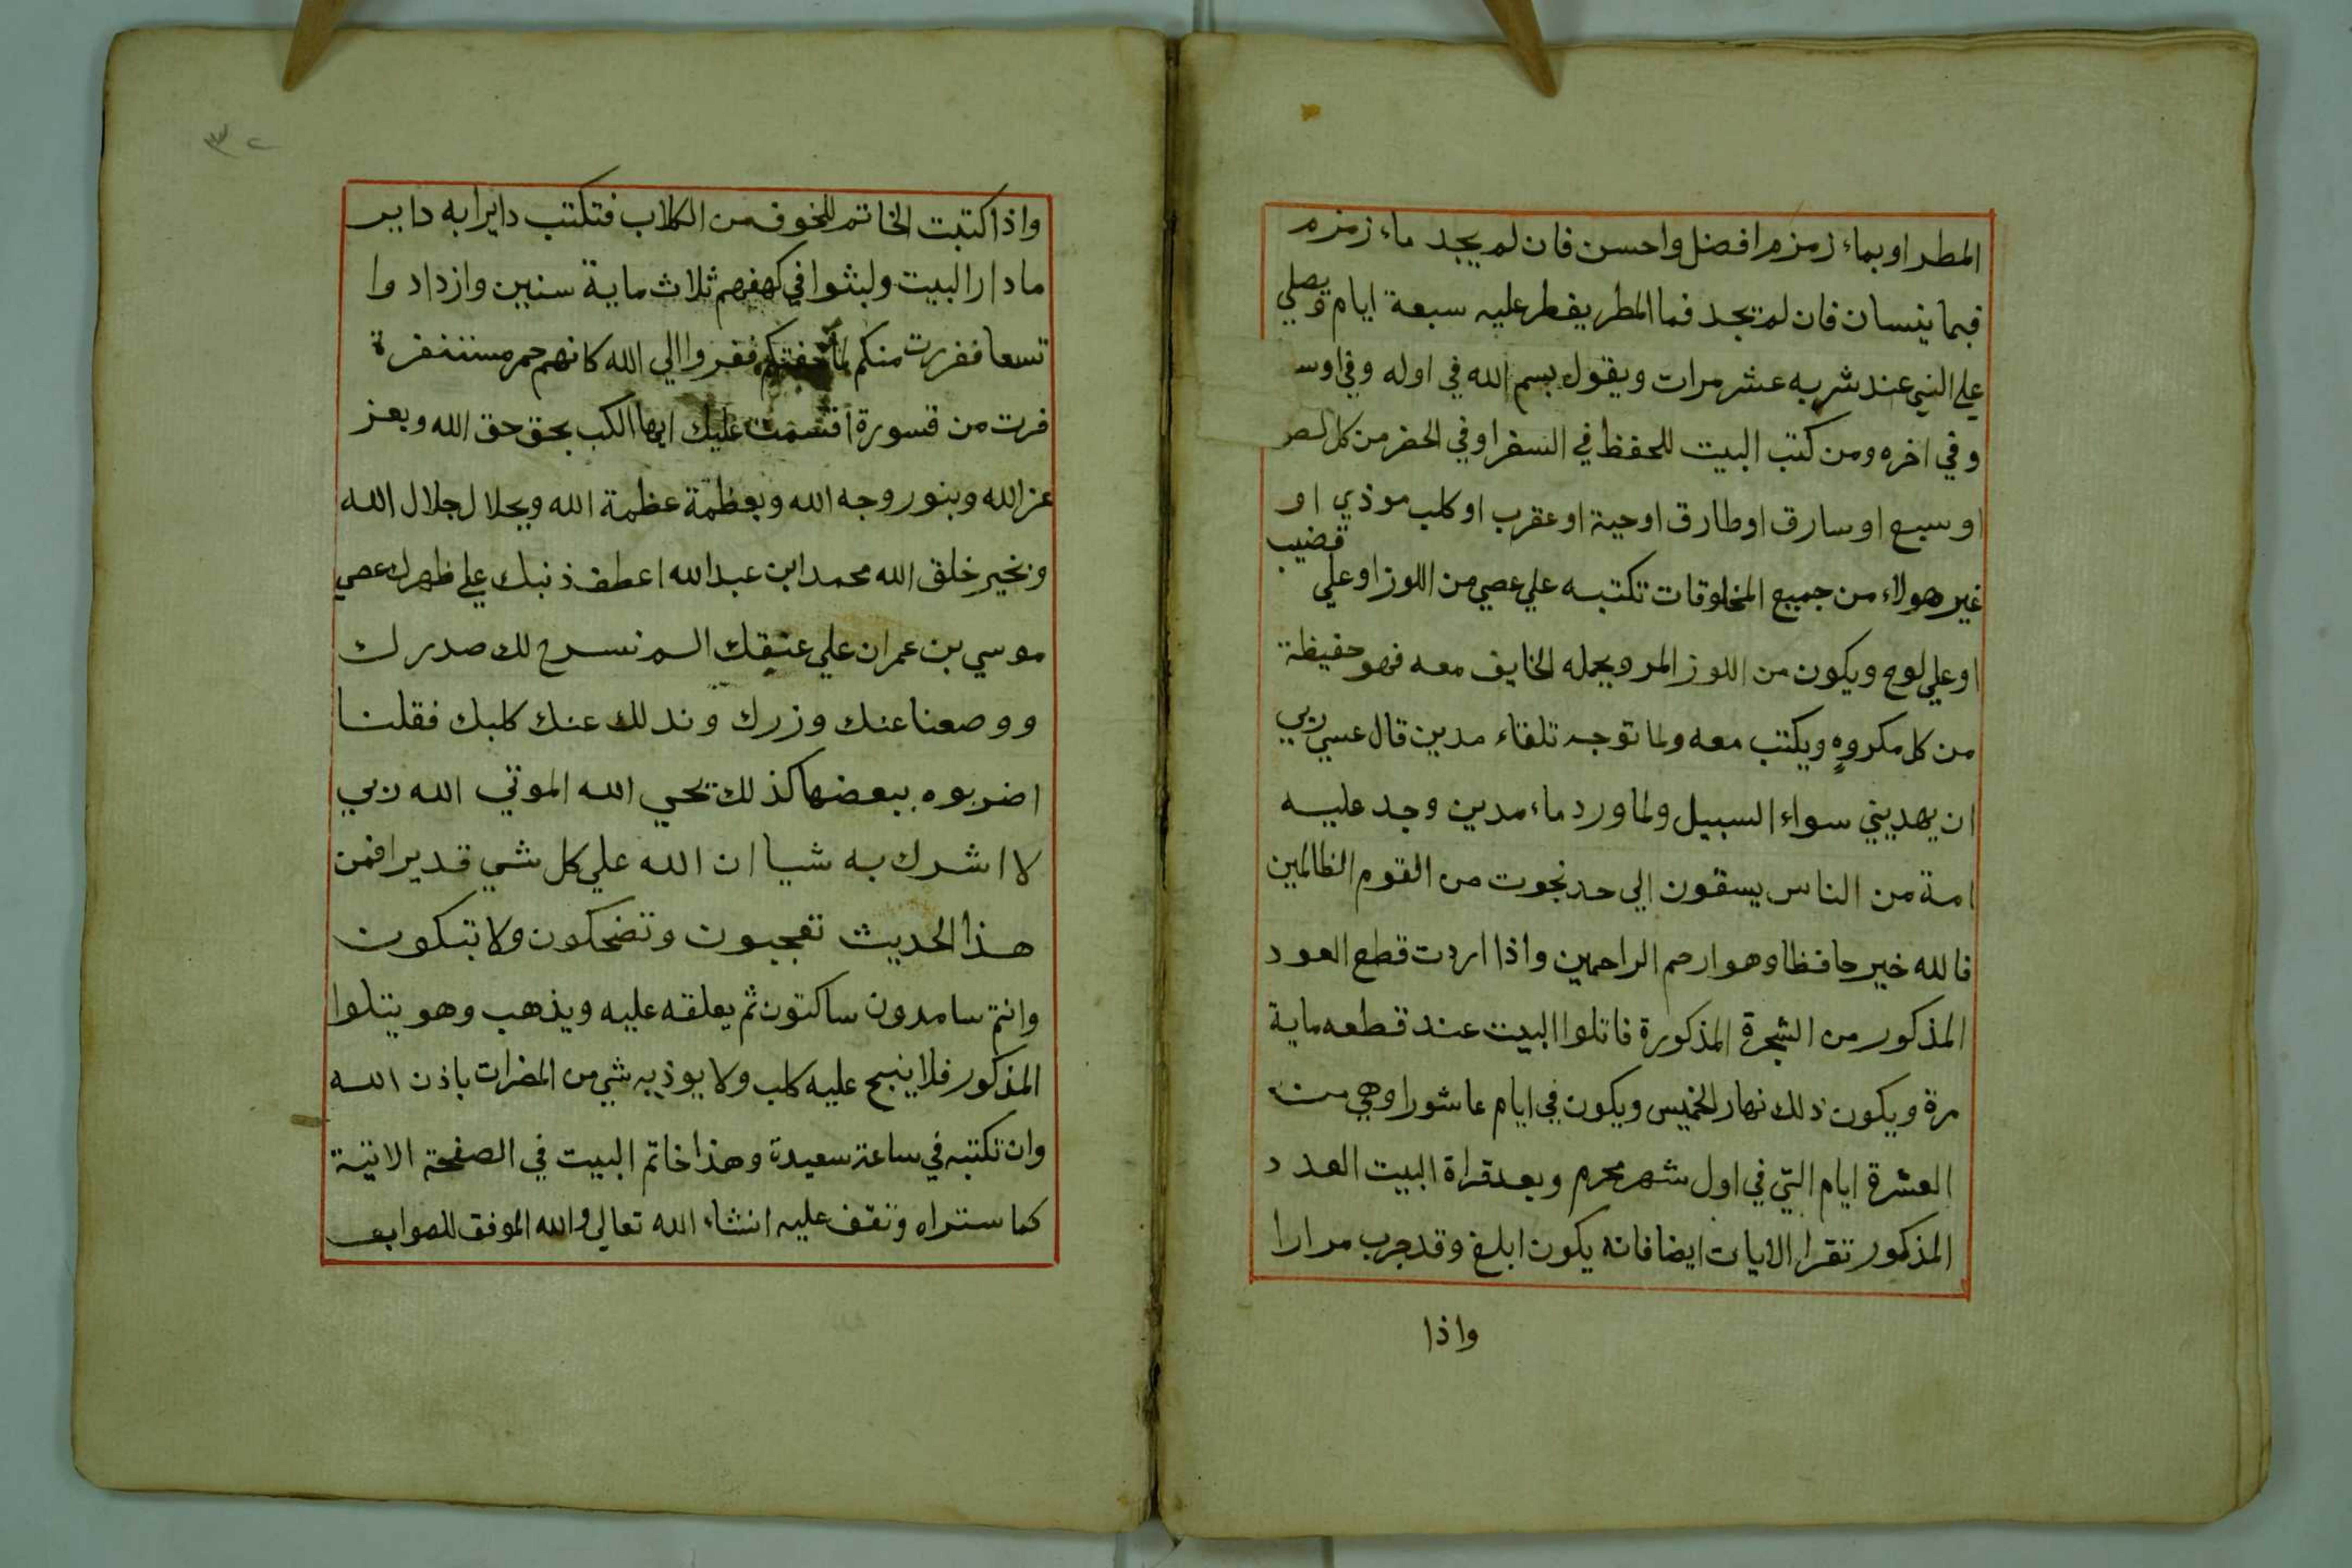 المطر اوبماء زمزم افضل واحسن فان لم يجد ماء زمزم
فبما ينسان فان لم تجد فما المطر يفطر عليه سبعة ايام ويصلي
علي النبي عند شربه عشر مرات ويقول بسم الله في اوله وفي اوسـ
وفي اخره ومن كتب البيت للحفظ في السفر اوفي الحضر من كل لص
او سبع او سارق او طارق او حية او عقرب او كلب موذي او
غير هولاء من جميع المخلوقات تكتبه علي عصي من اللوز او علي قضيب
او علي لوح ويكون من اللوز المر ويحمله الخايف معه فهو حفيظة
من كل مكروه ويكتب معه ولما توجه تلقاء مدين قال عسي ربي
ان يهديني سواء السبيل ولما ورد ماء مدين وجد عليه
امة من الناس يسقون الي حد نجوت من القوم الظالمين
فالله خير حافظا وهو ارحم الراحمين واذا اردت قطع العود
المذكور من الشجرة المذكورة فاتلوا البيت عند قطعه ماية
مرة ويكون ذلك نهار الخميس ويكون في ايام عاشورا وهي من
العشرة ايام التي في اول شهر محرم وبعد قراة البيت العدد
المذكور تقرا الايات ايضا فانه يكون ابلغ وقد جرب مرارا
واذا
٣٢
واذا كتبت الخاتم للخوف من الكلاب فتكتب دايرا به داير
ما دار البيت ولبثوا في كهفهم ثلاث ماية سنين وازدادوا
تسعا ففررت منكم لما خفتكم ففروا الي الله كانهم حمر مستنفرة
فرت من قسورة اقسمت عليك ايها الكب بحق حق الله وبعز
عز الله وبنور وجه الله وبعظمة عظمة الله وبجلال جلال الله
وبخير خلق الله محمد ابن عبد الله اعطف ذنبك علي ظهرك عصي
موسي بن عمران علي عنقك الم نسرح لك صدرك
ووصعنا عنك وزرك وندلك عنك كلبك فقلنا
اضربوه ببعضها كذلك يحي الله الموتي الله ربي
لا اشرك به شيا ان الله علي كل شي قدير افمن
هذا الحديث تعجبون وتضحكون ولا تبكون
وانتم سامدون ساكتون ثم يعلقه عليه ويذهب وهو يتلوا
المذكور فلا ينبح عليه كلب ولا يوذيه شي من المضرات باذن الله
وان تكتبه في ساعة سعيدة وهذا خاتم البيت في الصفحة الاتية
كما ستراه وتقف عليه انشاء الله تعالي والله الموفق للصواب